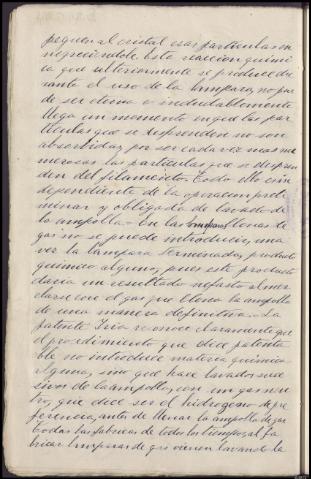 peguen al cristal esas particulas en
negreciendole. Esta reaccion quimi
ca que ulteriormente se produce du
rante el uso de la lampara, no pue
de ser eterna e indudablemente
llega un momento en que las par
ticulas que se desprenden no son
absorbidas, por ser cada vez mas nu
merosas las particulas que se despren
den del filamento. Todo ello in
dependiente de la operacion preli
minar y obligada de lavado de
la ampolla. En las lamparas llenas de
gas no se puede introducir, una
vez la lampara terminada, producto
quimico alguno, pues este producto
daria un resultado nefasto al mez
clarse con el gas que llena la ampolla
de una manera definitiva. La
patente Iria reconoce claramente que
el procedimiento que dice patenta
ble no introduce materia quimica
alguna, sino que hace lavados suce
sivos de la ampolla, con un gas neu
tro, que dice ser el hidrogeno de pre
ferencia, antes de llenar la ampolla de gas
todas las fabricas de todos los tiempos, al fa
bricar lamparas de gas vienen lavando la